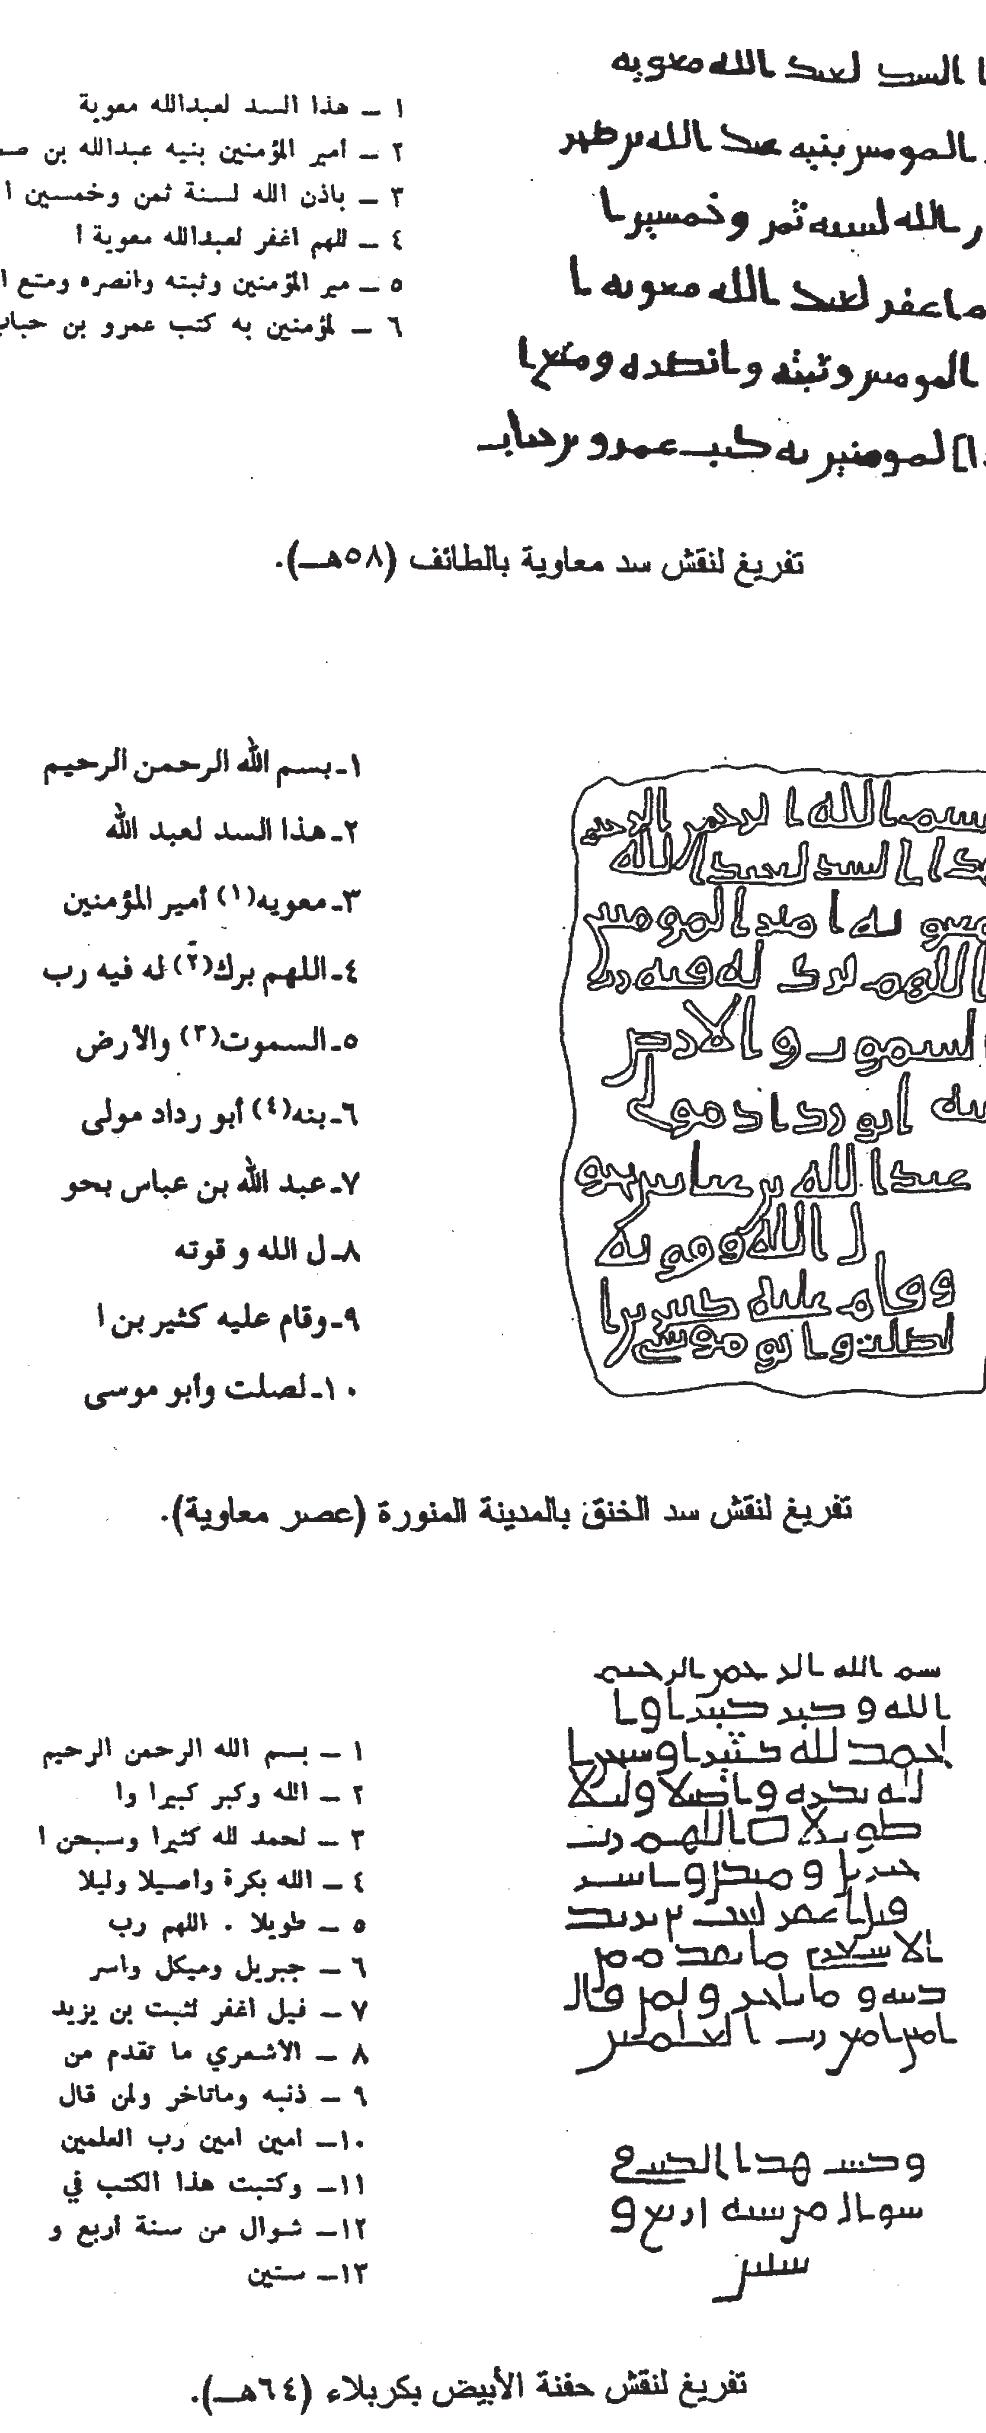 ١ – هذا السد لعبدالله معوية
٢ – أمير المؤمنين بنيه عبدالله بن
٣ – باذن الله لسنة ثمن وخمسين ا
٤ – للهم اغفر لعبدالله معوية أ
٥ – مير المؤمنين وثبته وانصره ومتع ا
٦ – لمؤمنين به كتب عمرو بن حباب
ا السد لعبد الله معويه
المومنين بنيه عبد الله بن صخر
ن الله لسنه ثمن وخمسين ا
م اغفر لعبد الله معويه ا
المومنين وثبته وانصره ومتع ا
[ا] لمومنين به كتب عمرو بن حباب
تفريغ لنقش سد معاوية بالطائف (٥٨هـ).
١- بسم الله الرحمن الرحيم
٢- هذا السد لعبد الله
٣- معويه(١) أمير المؤمنين
٤- اللهم برك(٢) له فيه رب
٥- السموت(٣) والأرض
٦- بنه(٤) أبو رداد مولى
٧- عبد الله بن عباس بحو
٨- ل الله و قوته
٩- وقام عليه كثير بن ا
١٠- لصلت وأبو موسى
بسم الله الرحمن الرحيم
هذا السد لعبد الله
معويه امير المومنين
اللهم برك له فيه رب
السموت والارض
بنه ابو رداد مولى
عبد الله بن عباس بحو
ل الله وقوته
وقام عليه كثير بن ا
لصلت وابو موسى
تفريغ لنقش سد الخنق بالمدينة المنورة (عصر معاوية).
١ – بسم الله الرحمن الرحيم
٢ – الله وكبر كبيرا وا
٣ – لحمد لله كثيرا وسبحن ا
٤ – الله بكرة وأصيلا وليلا
٥ – طويلا . اللهم رب
٦ – جبريل وميكل واسر
٧ – فيل اغفر لثبت بن يزيد
٨ – الأشعري ما تقدم من
٩ – ذنبه وماتاخر ولمن قال
١٠– امين امين رب العلمين
١١– وكتبت هذا الكتب في
١٢– شوال من سنة أربع و
١٣– ستين
بسم الله الرحمن الرحيم
الله وكبر كبيرا وا
لحمد لله كثيرا وسبحن ا
لله بكره واصيلا وليلا
طويلا اللهم رب
جبريل وميكل واسر
فيل اغفر لثبت بن يزيد
الاشعري ما تقدم من
ذنبه وما تاخر ولمن قال
امين امين رب العلمين
وكتبت هذا الكتب في
شوال من سنه اربع و
ستين
تفريغ لنقش حفنة الأبيض بكربلاء (٦٤هـ).